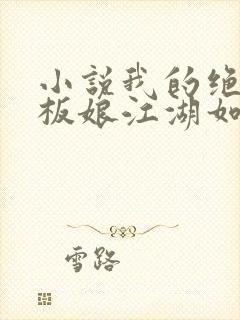 小说我的绝
板娘江湖如
雪路